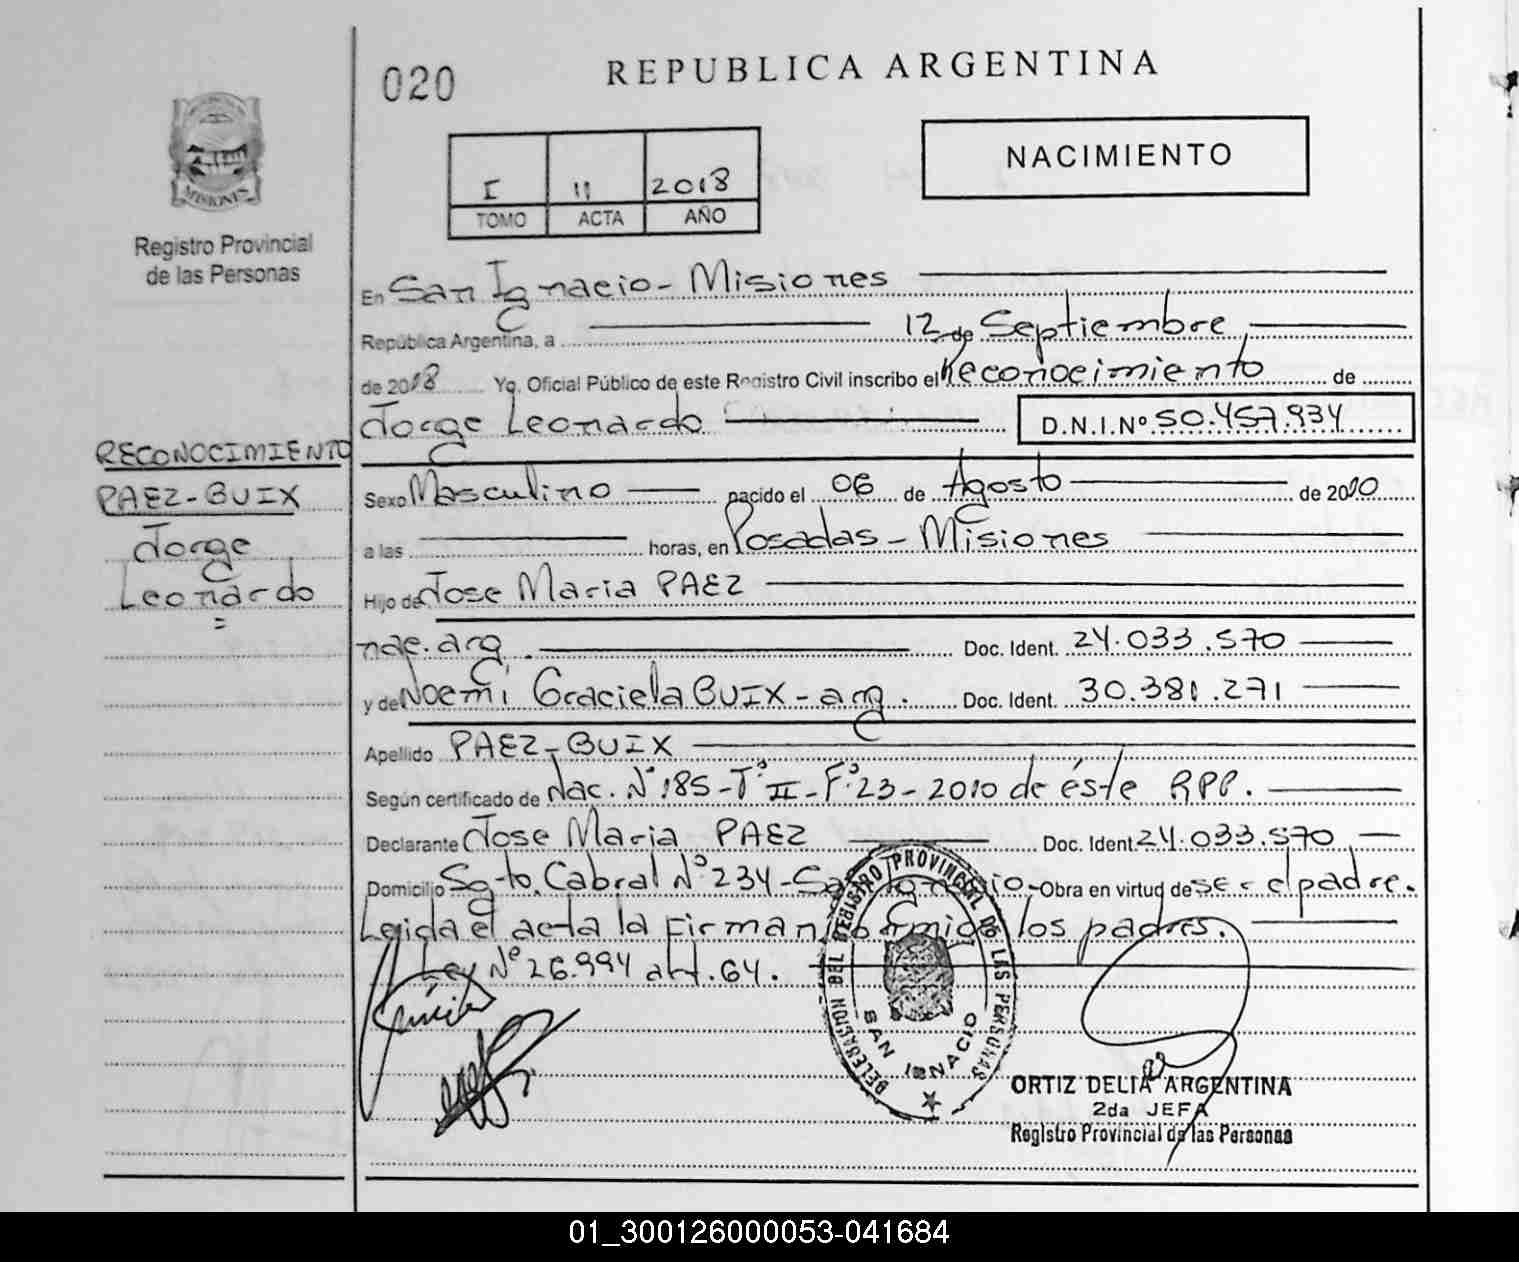 020
REPUBLICA ARGENTINA
NACIMIENTO
I 11 2018
TOMO ACTA AÑO
MISIONES
Registro Provincial
de las Personas
En San Ignacio - Misiones
República Argentina, a 12 de Septiembre
de 2018 Yo, Oficial Público de este Registro Civil inscribo el Reconocimiento de
Jorge Leonardo D.N.I.Nº 50.457.934
RECONOCIMIENTO
PAEZ-BUIX
Jorge
Leonardo
Sexo Masculino nacido el 06 de Agosto de 2010
a las horas, en Posadas - Misiones
Hijo de Jose Maria PAEZ
nac. arg. Doc. Ident. 24.033.570
y de Noemí Graciela BUIX - arg. Doc. Ident. 30.381.271
Apellido PAEZ-BUIX
Según certificado de Nac. Nº 185-Tº II-Fº 23-2010 de éste RPP.
Declarante Jose Maria PAEZ Doc. Ident 24.033.570
Domicilio Sgto. Cabral Nº 234-San Ignacio- Obra en virtud de ser el padre.
Leida el acta la Firman conmigo los padres.
Ley Nº 26.994 art. 64.
DELEGACION DEL REGISTRO PROVINCIAL DE LAS PERSONAS
SAN IGNACIO
ORTIZ DELIA ARGENTINA
2da JEFA
Registro Provincial de las Personas
01_300126000053-041684